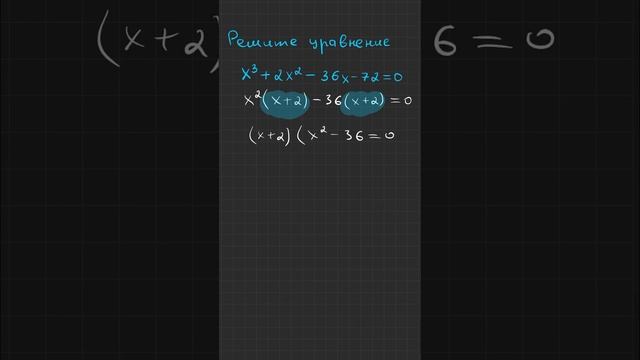 Решите уравнение
x³+2x²-36x-72=0
x²(x+2)-36(x+2)=0
(x+2)(x²-36=0
(x+2)
6=0